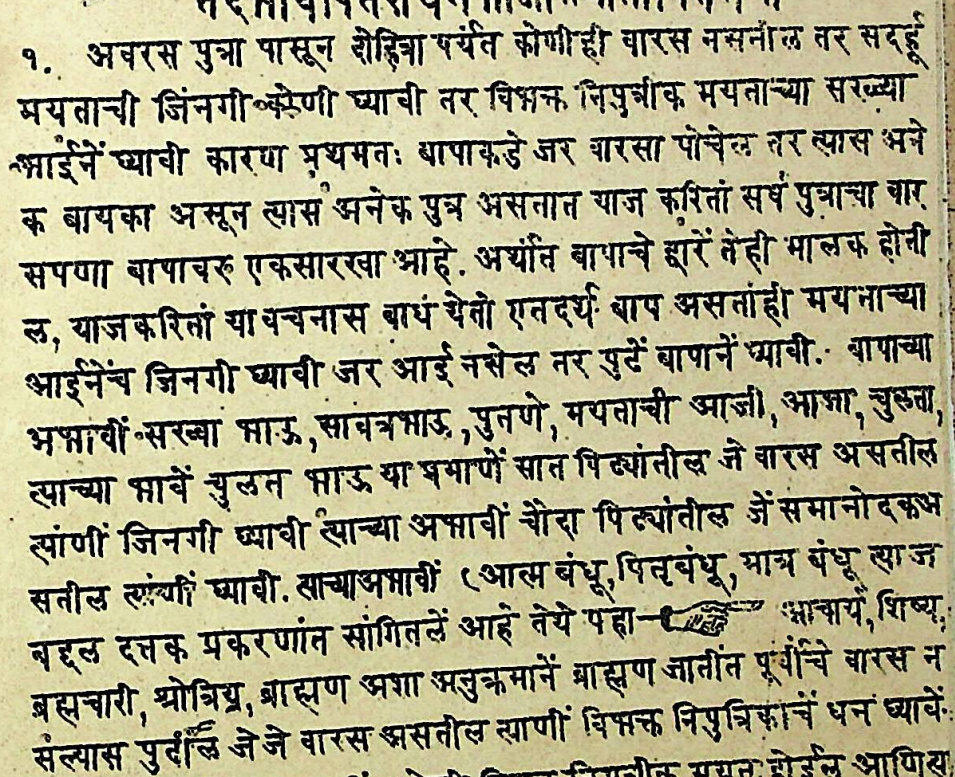 १. अवरस पुत्रा पासून दोहित्रा पर्यंत कोणीही वारस नसतील तर सदर्हू
मयताची जिंनगी कोणी घ्यावी तर विभक्त निपुत्रीक मयताच्या सरख्या
आईनें घ्यावी कारण प्रथमतः बापाकडे जर वारसा पोचेल तर त्यास अने
क बायका असून त्यास अनेक पुत्र असतात याज करितां सर्व पुत्राचा वार
सपणा बापावरु एकसारखा आहे. अर्थात बापाचे द्वारें तेही मालक होती
ल, याजकरितां या वचनास बाध येतो एतदर्थ बाप असतांही मयताच्या
आईनेंच जिनगी घ्यावी जर आई नसेल तर पुढें बापानें घ्यावी. बापाच्या
अभावीं सख्खा भाऊ, सावत्रभाऊ, पुतणे, मयताची आजी, आजा, चुलता,
त्याच्या भावें चुलत भाऊ या प्रमाणें सात पिढ्यांतील जे वारस असतील
त्यांणीं जिनगी घ्यावी त्याच्या अभावीं चौदा पिढ्यांतील जें समानोदकअ
सतील त्यांणीं घ्यावी. त्याच्याअभावीं (आत्म बंधू, पितृबंधू, मात्र बंधू त्याज
बद्दल दत्तक प्रकरणांत सांगितलें आहे तेथे पहा आचार्य, शिष्य,
ब्रह्मचारी, श्रोत्रिय, ब्राह्मण अशा अनुक्रमानें ब्राह्मण जातींत पूर्वीचे वारस न
सल्यास पुढील जे जे वारस असतील त्याणीं विभक्त निपुत्रिकाचें धन घ्यावें